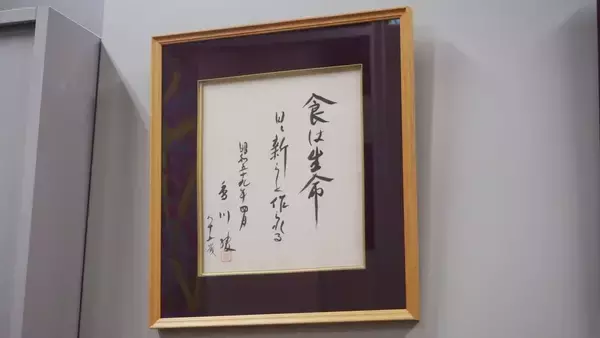 食は生命
日々新しく作る
昭和五十九年四月
香川綾
八十五歳